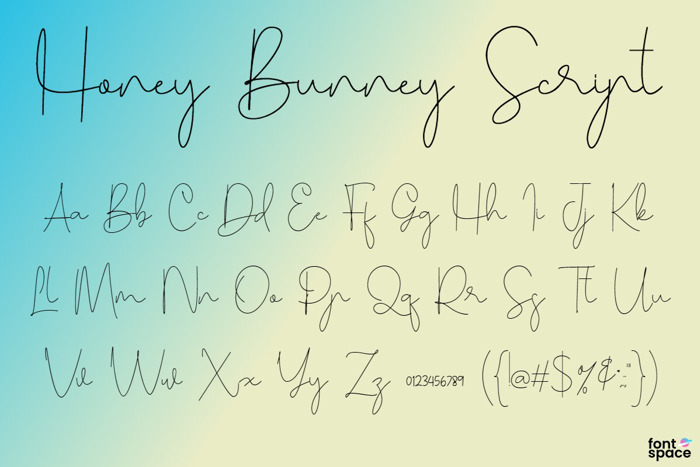 Honey Bunney Script
Aa Bb Cc Dd Ee Ff Gg Hh Ii Jj Kk
Ll Mm Nn Oo Pp Qq Rr Ss Tt Uu
Vv Ww Xx Yy Zz 0123456789 ({!@#$%&:;"~})
font
space